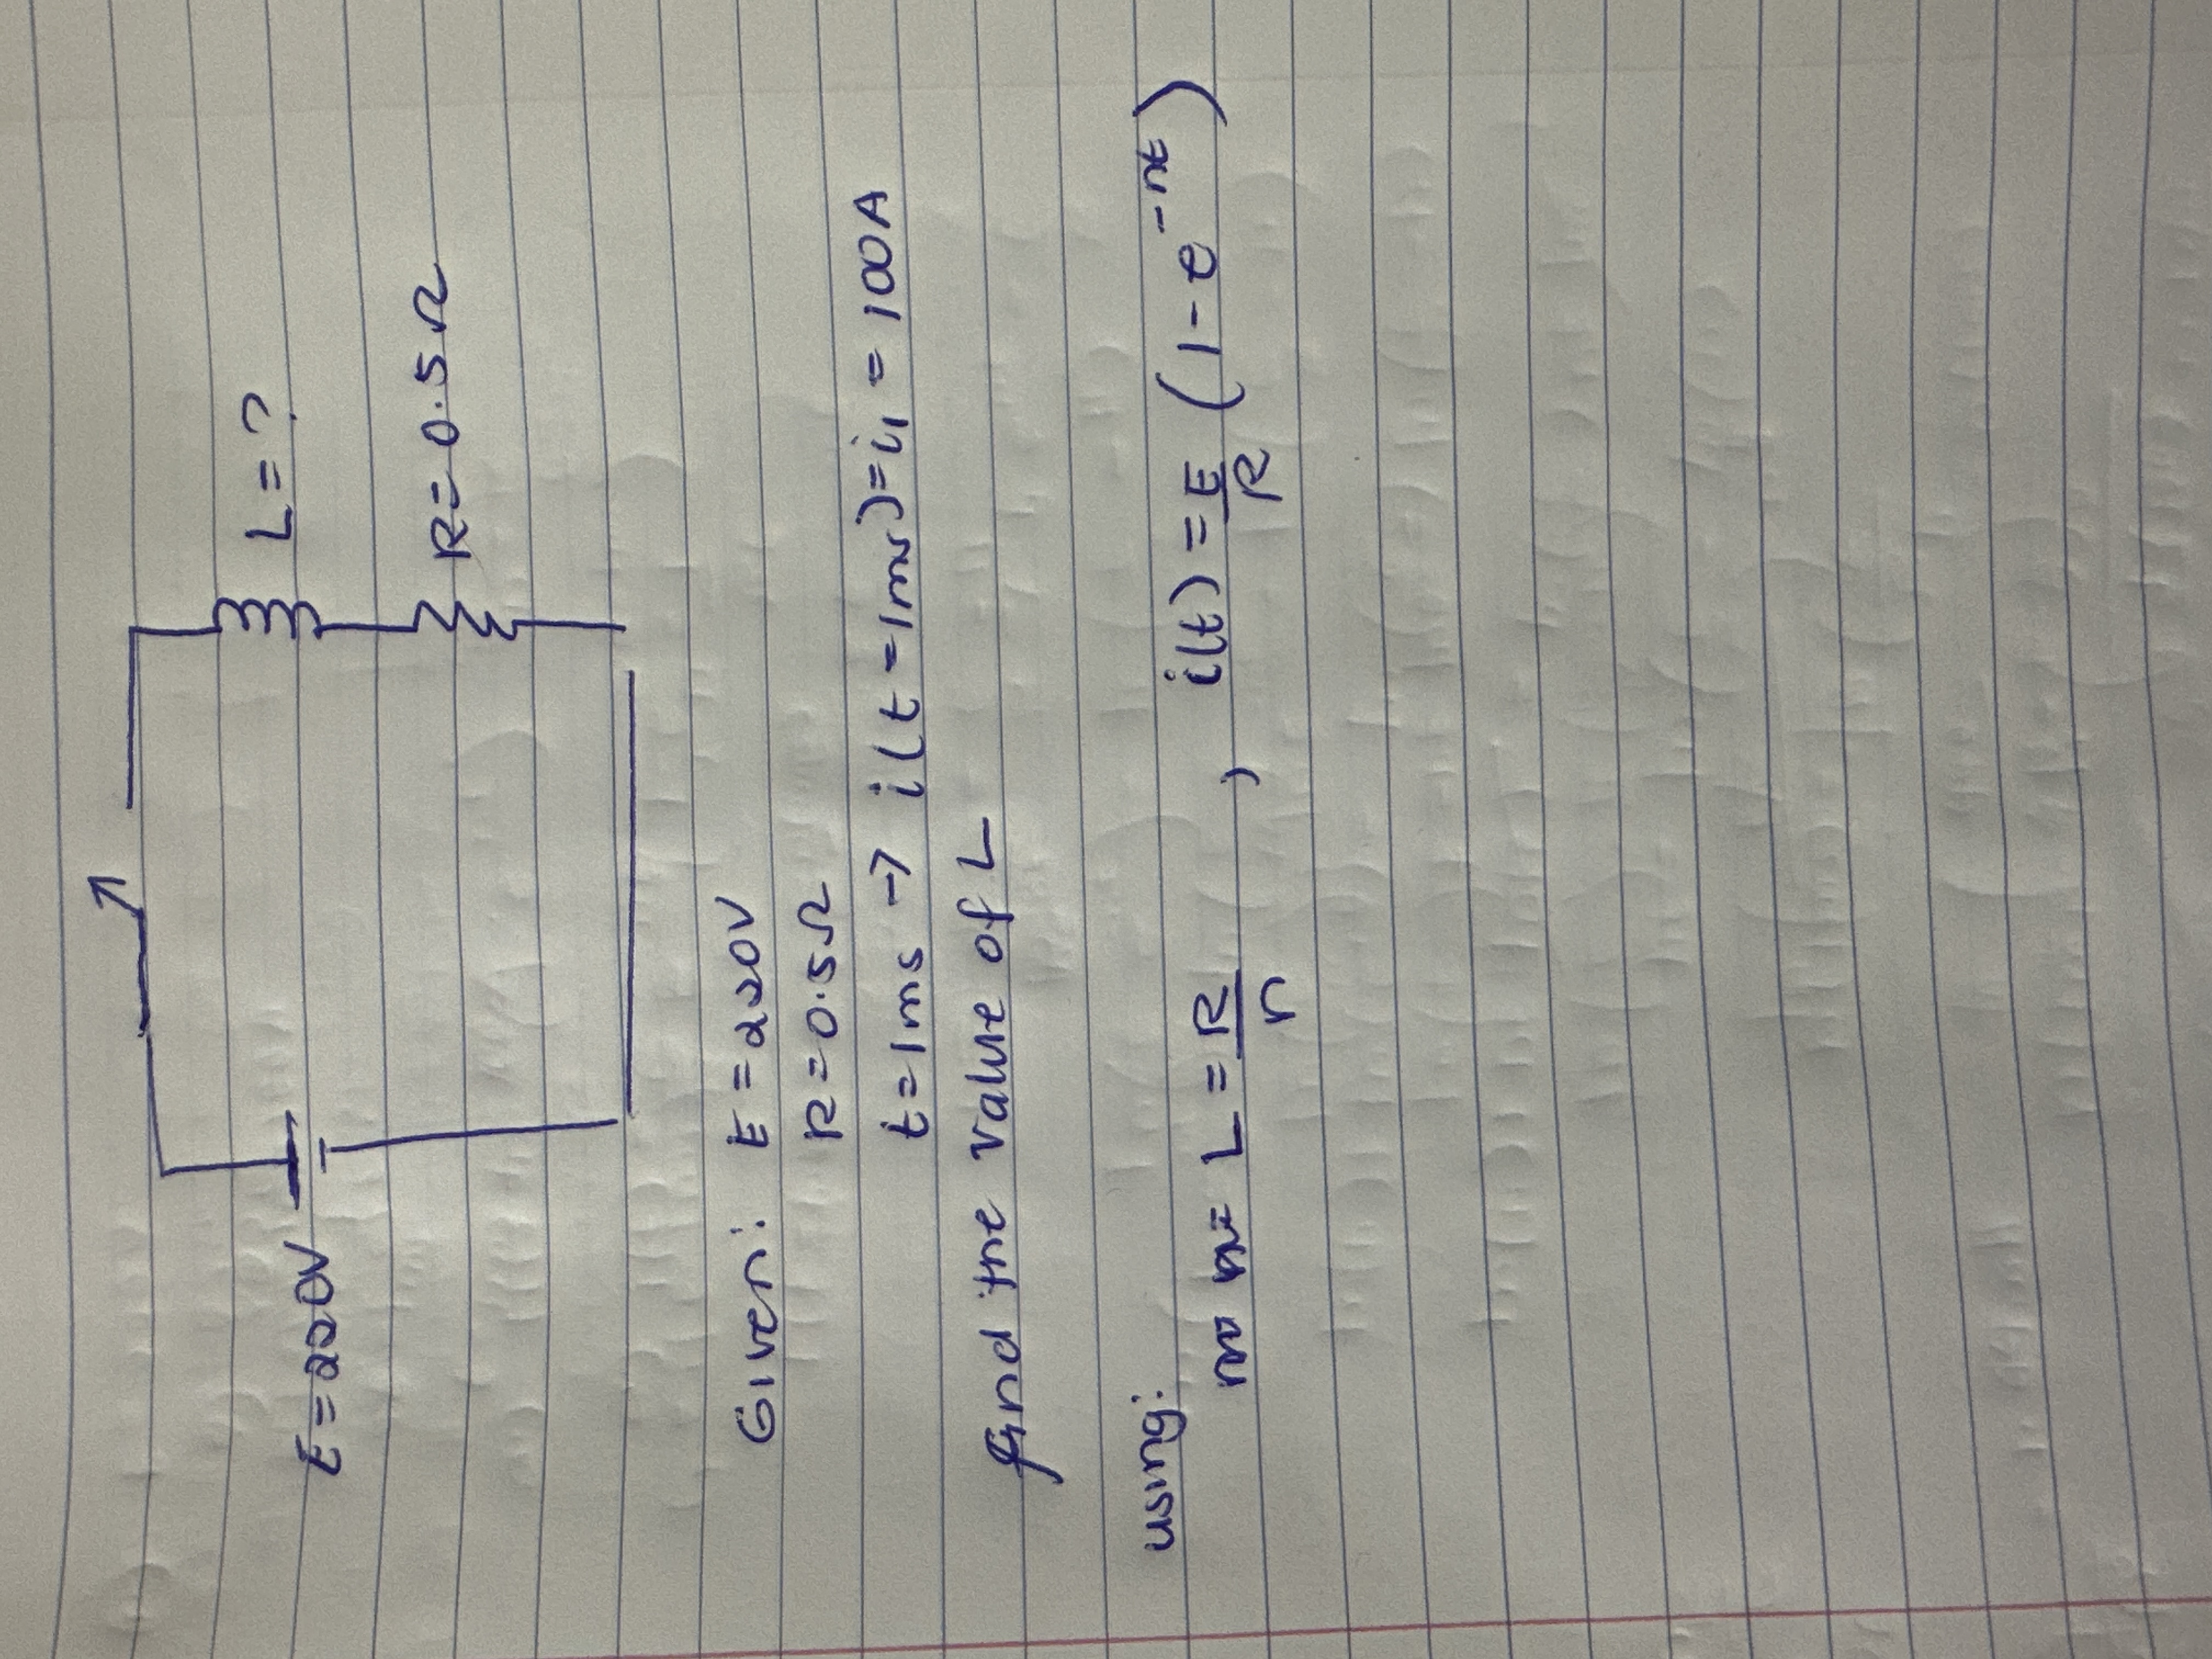 L = ?
E = 220V
R = 0.5 Ω
Given: E = 220V
R = 0.5 Ω
t = 1ms → i(t = 1ms) = i₁ = 100A
find the value of L
using:
L = R/n , i(t) = E/R (1 - e^-nt)